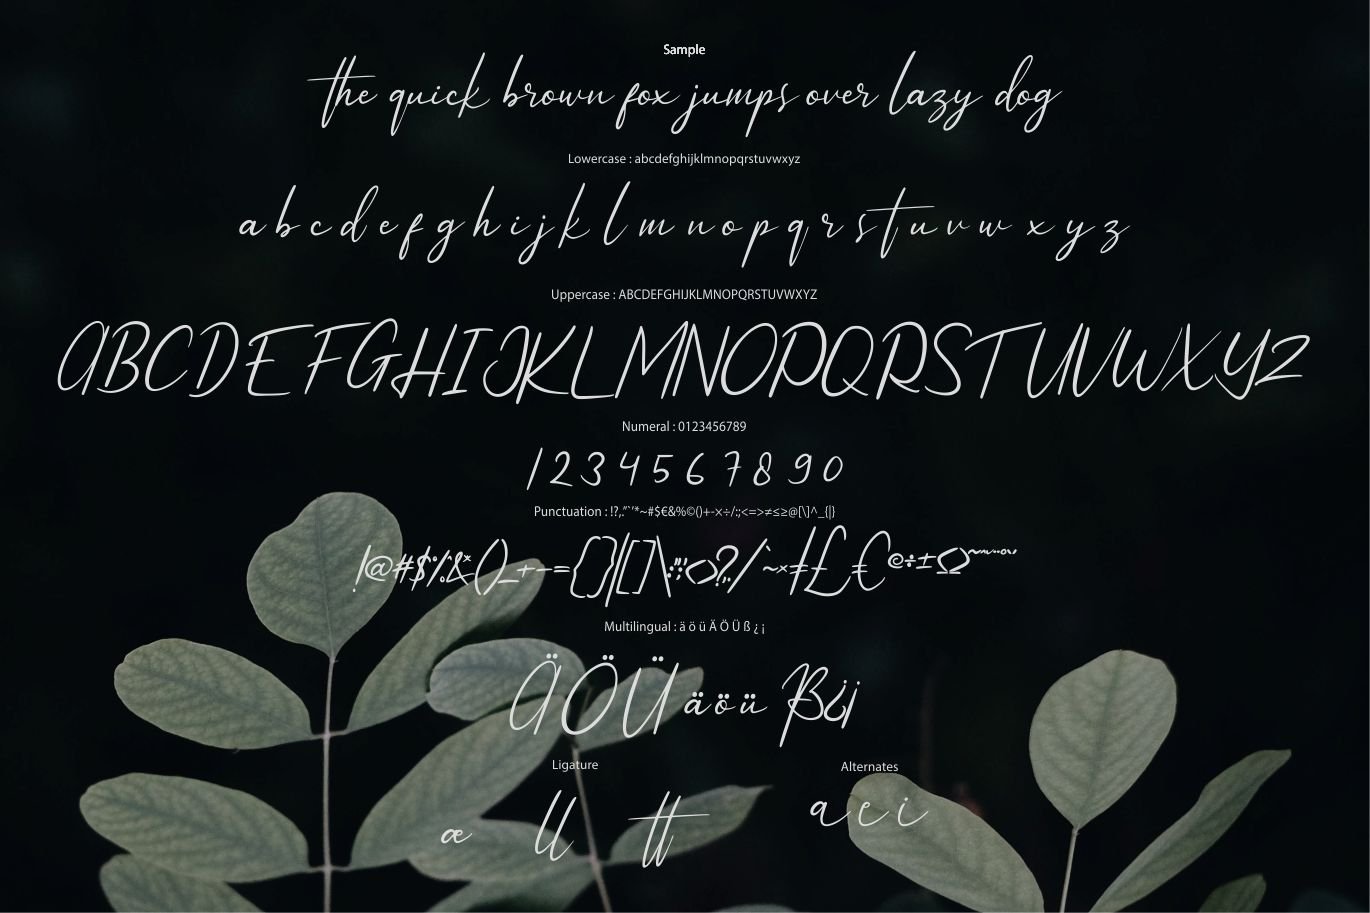 Sample
the quick brown fox jumps over lazy dog
Lowercase : abcdefghijklmnopqrstuvwxyz
a b c d e f g h i j k l m n o p q r s t u v w x y z
Uppercase : ABCDEFGHIJKLMNOPQRSTUVWXYZ
ABCDEFGHIJKLMNOPQRSTUVWXYZ
Numeral : 0123456789
1 2 3 4 5 6 7 8 9 0
Punctuation : !?,."`'*~#$€&%©()+-×÷/:;<=>≠≤≥@[\]^_{|}
!@#$%^&*()_+-={}|[]\:";'<>?,./`~×≠£€©÷±≤≥
Multilingual : ä ö ü Ä Ö Ü ß ¿ ¡
ÄÖÜ äöü ß¿¡
Ligature
Alternates
æ ll tt
a e i